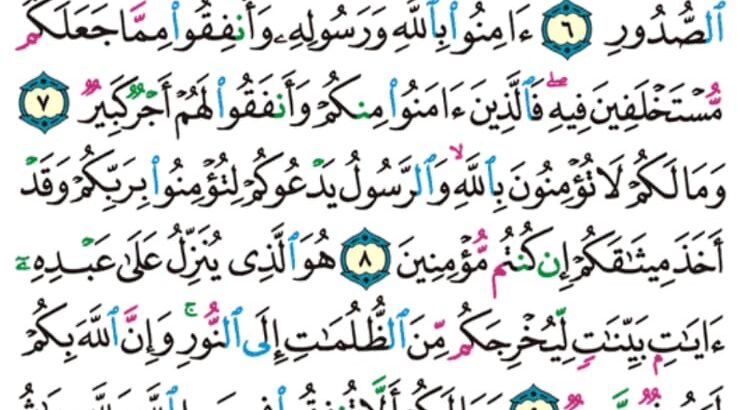 ٱلصُّدُورِ ٦ ءَامِنُوا۟ بِٱللَّهِ وَرَسُولِهِۦ وَأَنفِقُوا۟ مِمَّا جَعَلَكُم
مُّسْتَخْلَفِينَ فِيهِ ۖ فَٱلَّذِينَ ءَامَنُوا۟ مِنكُمْ وَأَنفَقُوا۟ لَهُمْ أَجْرٌ كَبِيرٌ ٧
وَمَا لَكُمْ لَا تُؤْمِنُونَ بِٱللَّهِ ۙ وَٱلرَّسُولُ يَدْعُوكُمْ لِتُؤْمِنُوا۟ بِرَبِّكُمْ وَقَدْ
أَخَذَ مِيثَٰقَكُمْ إِن كُنتُم مُّؤْمِنِينَ ٨ هُوَ ٱلَّذِى يُنَزِّلُ عَلَىٰ عَبْدِهِۦٓ
ءَايَٰتٍۭ بَيِّنَٰتٍ لِّيُخْرِجَكُم مِّنَ ٱلظُّلُمَٰتِ إِلَى ٱلنُّورِ ۚ وَإِنَّ ٱللَّهَ بِكُمْ